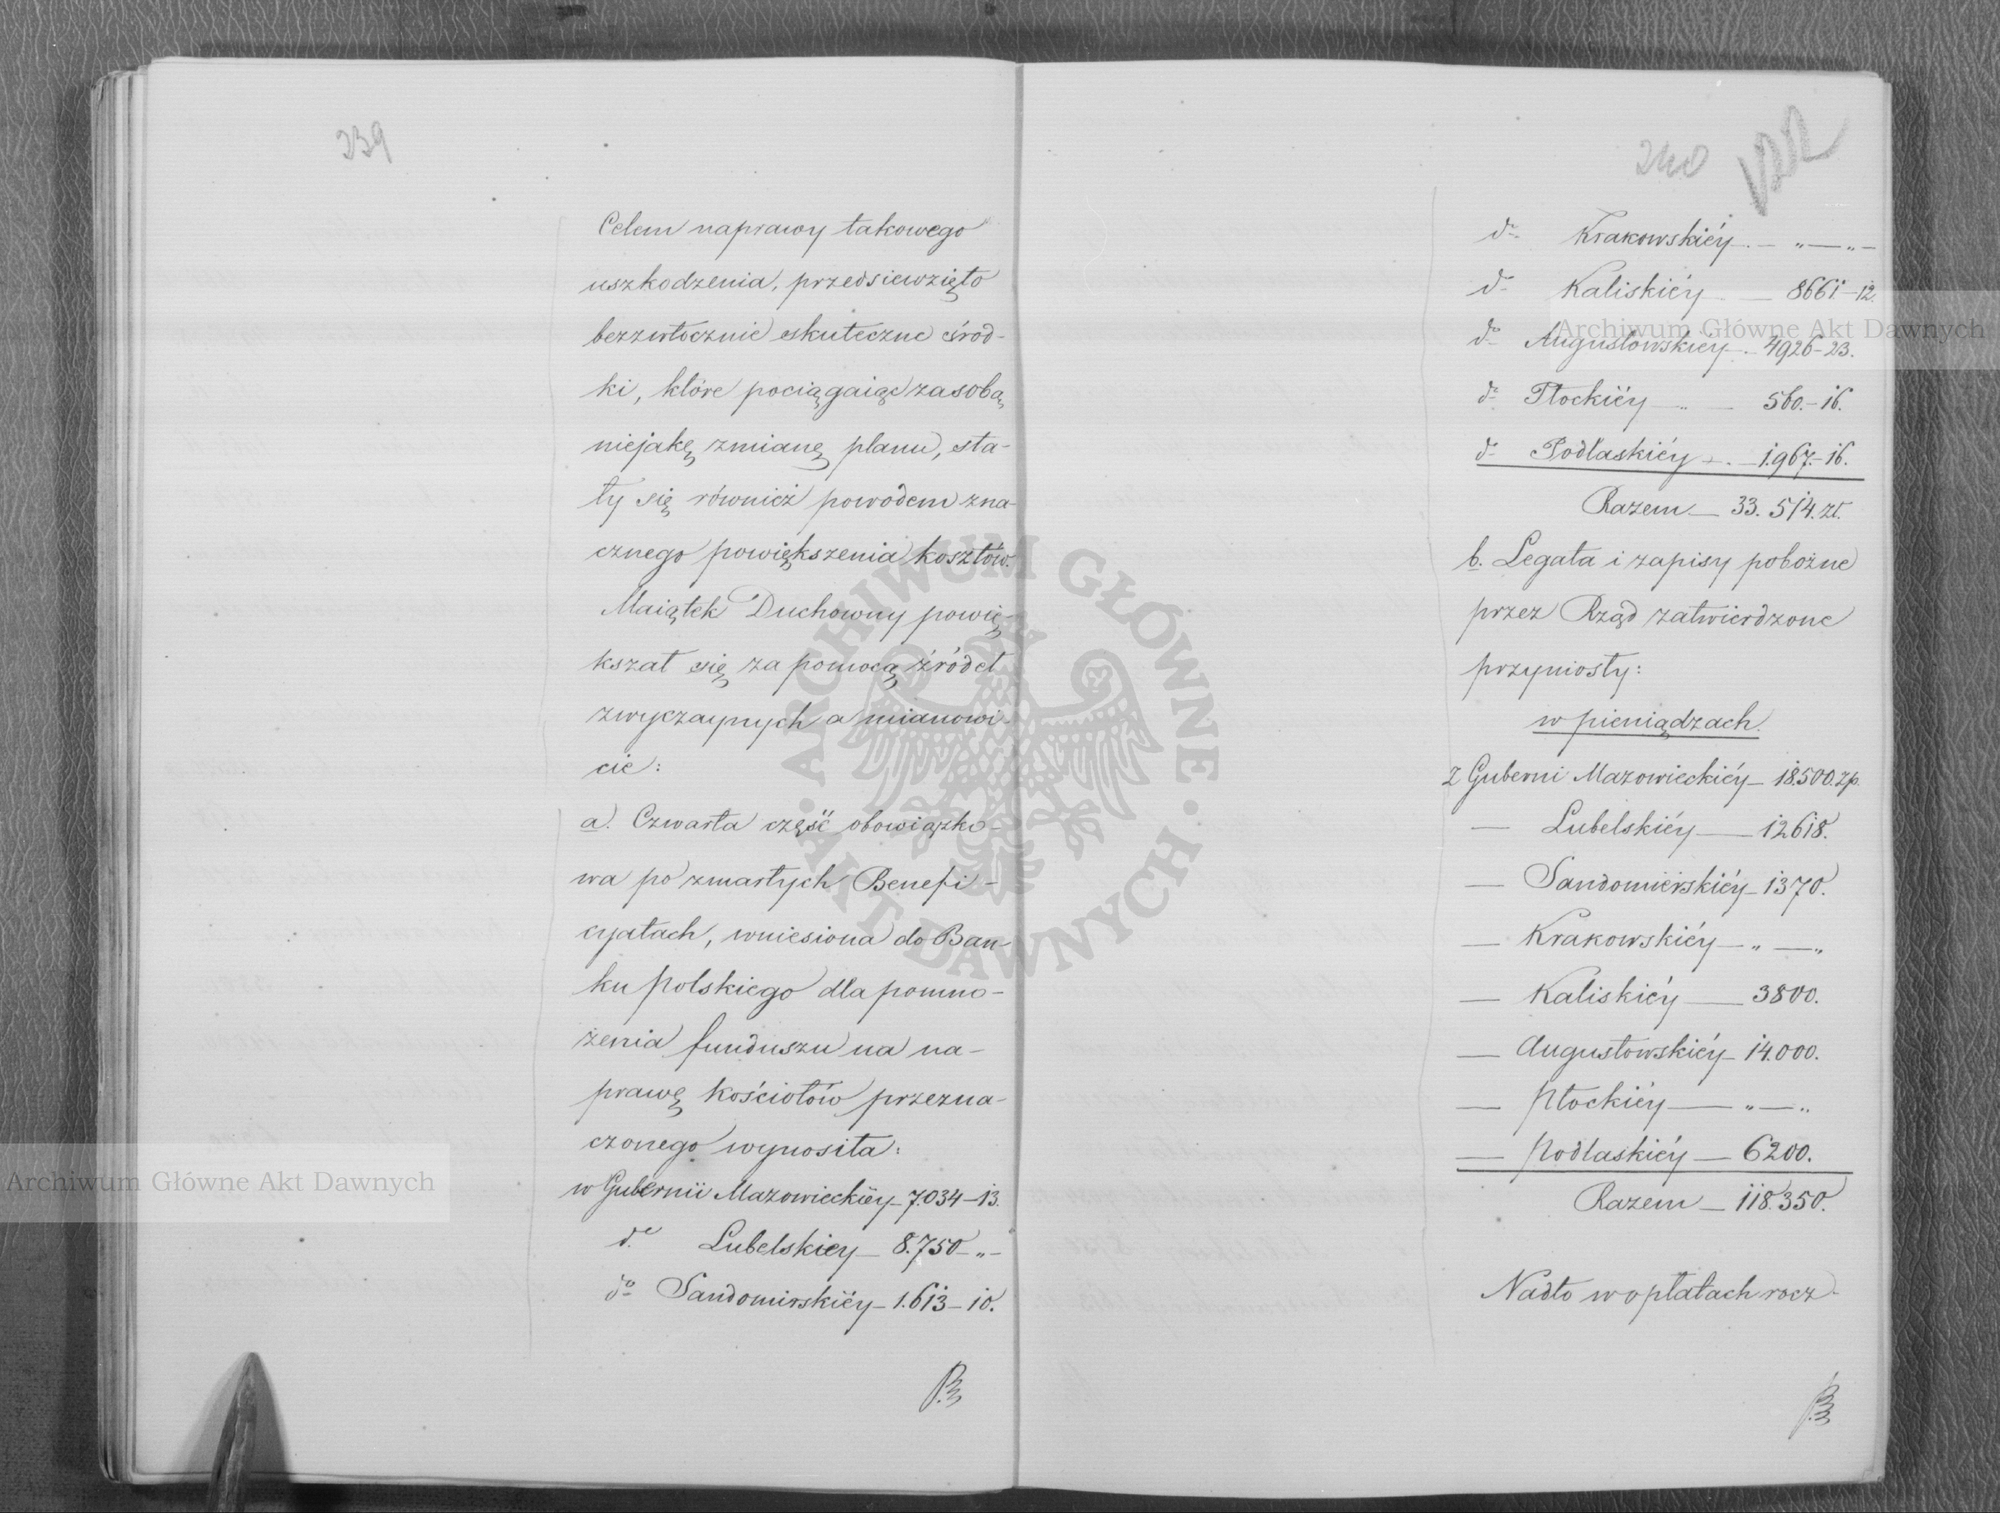 239
Celem naprawy takowego
uszkodzenia, przedsiewzięto
bezzwłocznie skuteczne środ-
ki, które pociągaiąc za sobą
niejaką zmianę planu, sta-
ły się również powodem zna-
cznego powiększenia kosztów.
Maiątek Duchowny powię-
kszał się za pomocą źródeł
zwyczaynych a mianowi-
cie:
a. Czwarta część obowiązko-
wa po zmarłych Benefi-
cyatach, wniesiona do Ban-
ku polskiego dla pomno-
żenia funduszu na na-
prawę kościołów przezna-
czonego wynosiła:
w Gubernii Mazowieckiéy - 7.034 - 13.
do Lubelskiey - 8.750 - „ -
do Sandomirskiéy - 1.613 - 10.
240 122
do Krakowskiéy - „ - „ -
do Kaliskiéy - 8661 - 12.
do Augustowskiéy - 4926 - 23.
do Płockiéy - 560. - 16.
do Podlaskiéy - 1.967. - 16.
Razem - 33.514. zł.
b. Legata i zapisy pobożne
przez Rząd zatwierdzone
przyniosły:
w pieniądzach.
z Guberni Mazowieckiéy - 18.500. zp.
- Lubelskiéy - 12618.
- Sandomierskiéy - 1370.
- Krakowskiéy - „ - „
- Kaliskiéy - 3800.
- Augustowskiéy - 14.000.
- Płockiéy - „ - „
- Podlaskiéy - 6200.
Razem - 118.350.
Nadto w opłatach rocz-
ARCHIWUM GŁÓWNE · AKT DAWNYCH ·
Archiwum Główne Akt Dawnych
Archiwum Główne Akt Dawnych